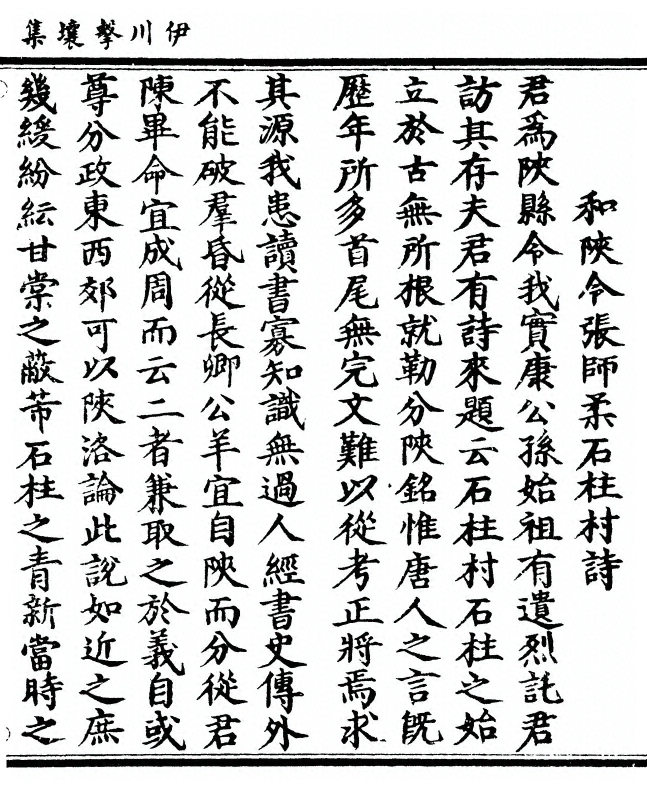 伊川擊壤集
和陝令張師柔石柱村詩
君爲陝縣令我實康公孫始祖有遺烈託君
訪其存夫君有詩來題云石柱村石柱之始
立於古無所根就勒分陝銘惟唐人之言旣
歷年所多首尾無完文難以從考正將焉求
其源我患讀書寡知識無過人經書史傳外
不能破羣昏從長卿公羊宜自陝而分從君
陳畢命宜成周而云二者兼取之於義自或
尊分政東西郊可以陝洛論此說如近之庶
幾緩紛紜甘棠之蔽芾石柱之青新當時之